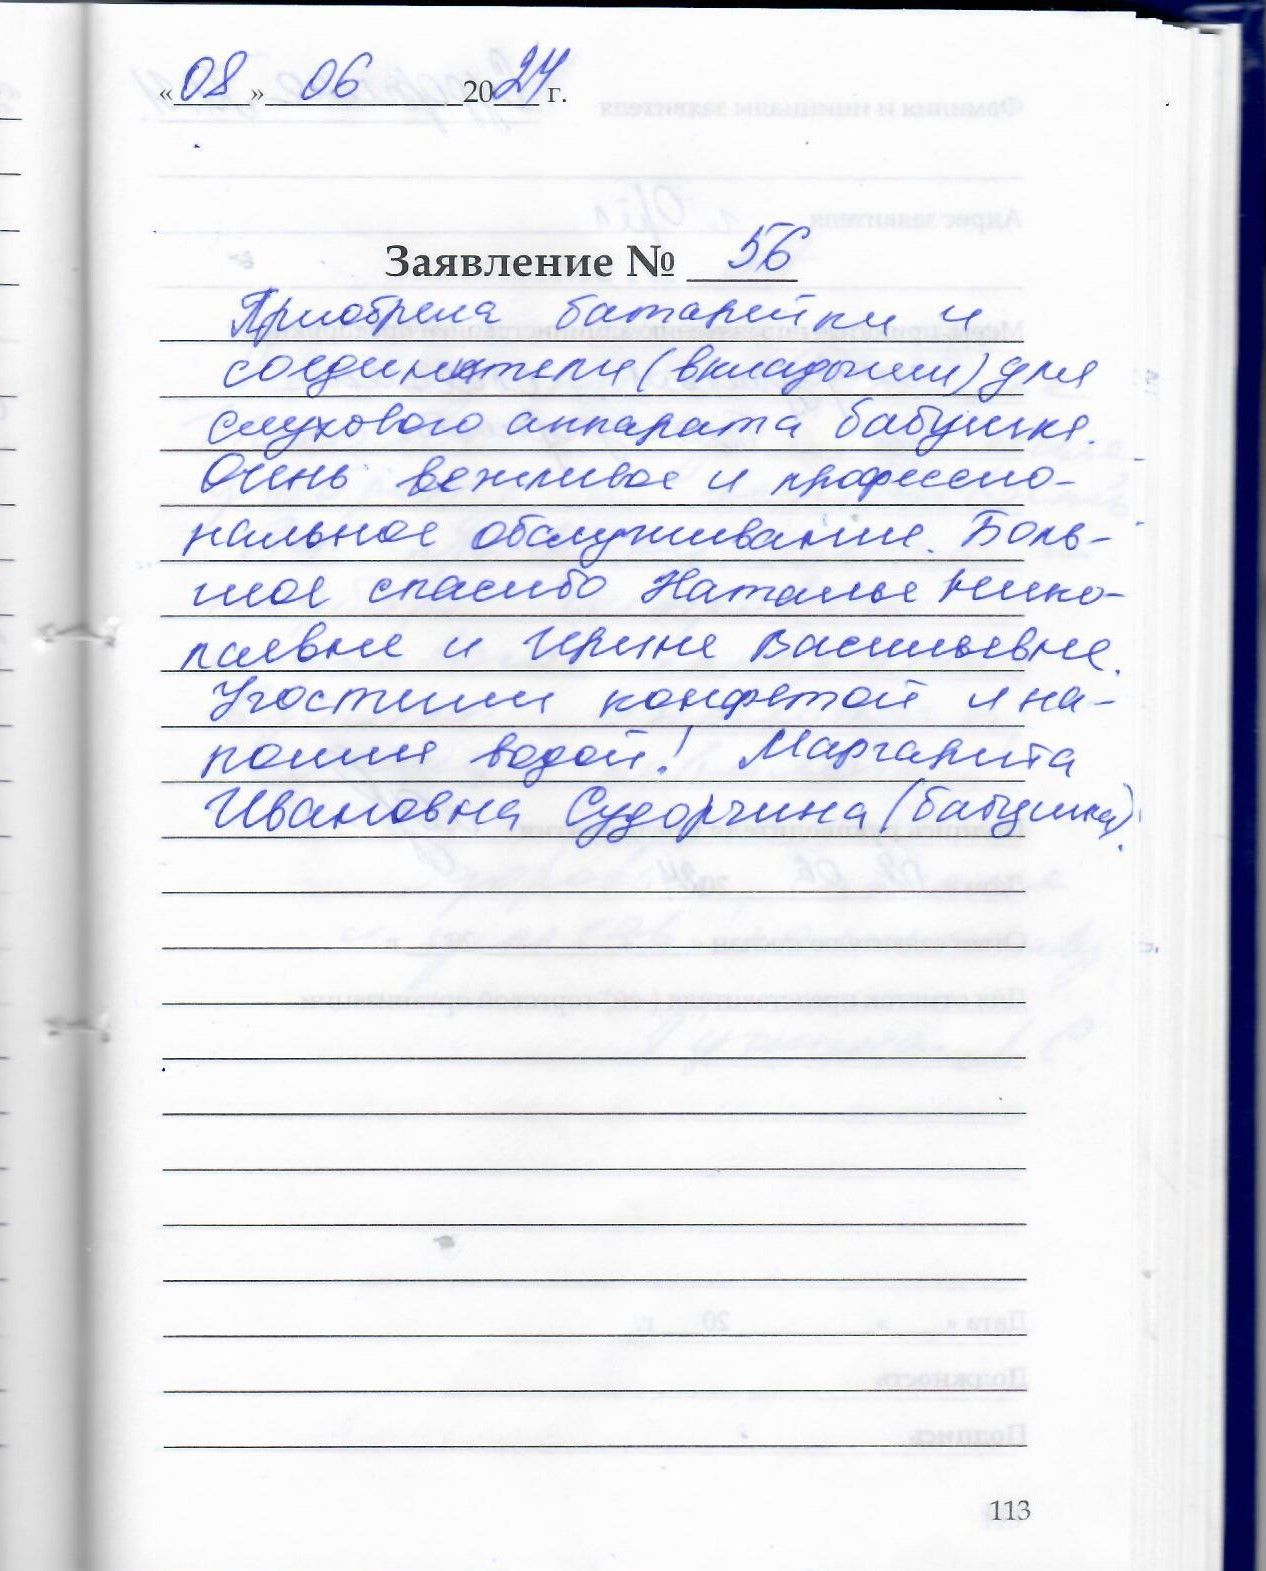 «08» 06 2024 г.
Заявление № 56
Приобрела батарейки и
соединители (вкладыши) для
слухового аппарата бабушке.
Очень вежливое и профессио-
нальное обслуживание. Боль-
шое спасибо Наталье Нико-
лаевне и Ирине Васильевне.
Угостили конфетой и на-
поили водой! Маргарита
Ивановна Судоргина (бабушка).
113